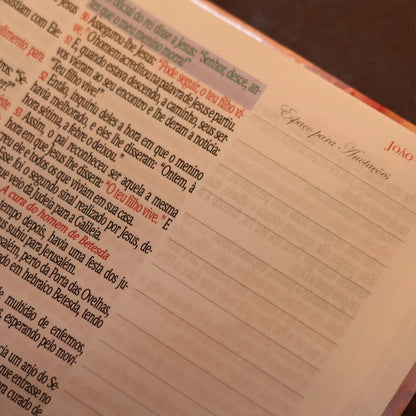 Oficial do rei disse a Jesus: "Senhor, desce, an-
tes que o meu menino morra!"
50 Assegurou-lhe Jesus: "Pode seguir, o teu filho vi-
ve." O homem acreditou na palavra de Jesus e partiu.
51 E, quando estava descendo, a caminho, seus ser-
vos vieram ao seu encontro e lhe deram a notícia:
"teu filho vive!"
52 Então, inquiriu deles a hora em que o menino
havia melhorado, e eles lhe disseram: "Ontem, à
hora sétima, a febre o deixou."
53 Assim, o pai reconheceu ser aquela a mesma
hora em que Jesus lhe dissera: "O teu filho vive." E
creu ele e todos os que viviam em sua casa.
Esse foi o segundo sinal realizado por Jesus, de-
que veio da Judeia para a Galileia.
A cura do homem de Betesda
tempo depois, havia uma festa dos ju-
s subiu para Jerusalém.
salém, perto da Porta das Ovelhas,
ado em hebraico Betesda, tendo
e multidão de enfermos,
, esperando pelo movi-
cia um anjo do Se-
que entrasse no
ra curado de
Jesus
stiam com Ele.
alimento para
Espaço para Anotações
JOÃO